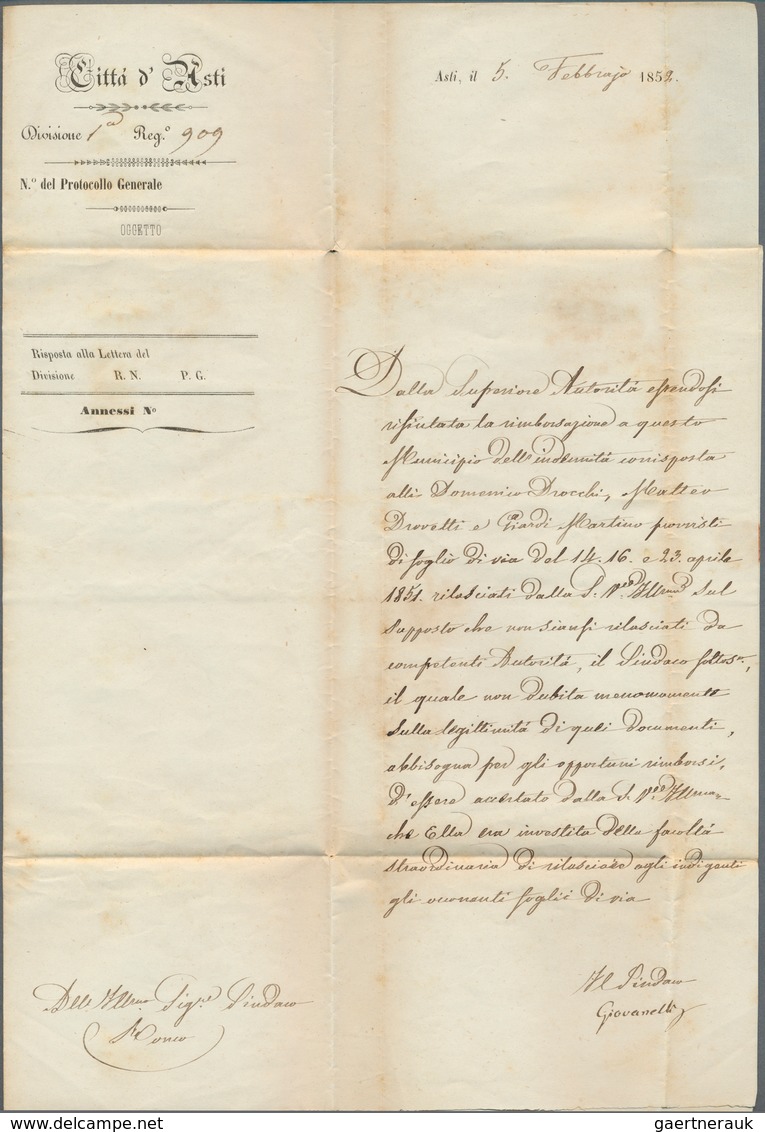 Città d'Asti
Asti, il 5. Febbrajo 1852.
Divisione 1a Reg.o 909
N.o del Protocollo Generale
OGGETTO
Risposta alla Lettera del
Divisione R. N. P. G.
Annessi No
Dalla Superiore Autorità essendosi
rifiutata la rimborsazione a questo
Municipio dell'indennità corrisposta
alli Domenico Drocchi, Matteo
Drovetti e Martino provvisti
di foglio di via del 14. 16. e 23. aprile
1851. rilasciati dalla S. V. Ill.ma sul
supposto che non siansi rilasciati da
competenti Autorità, il Sindaco sottos.o,
il quale non dubita menomamente
sulla legittimità di quei documenti,
abbisogna per gli opportuni rimborsi,
d'essere accertato dalla S. V. Ill.ma
che Ella era investita della facoltà
straordinaria di rilasciare agli indigenti
gli occorrenti foglii di via
Il Sindaco
Giovanelli
Dell Ill.mo Sig.re Sindaco
Ronco
delcampe.net
gaertnerauk